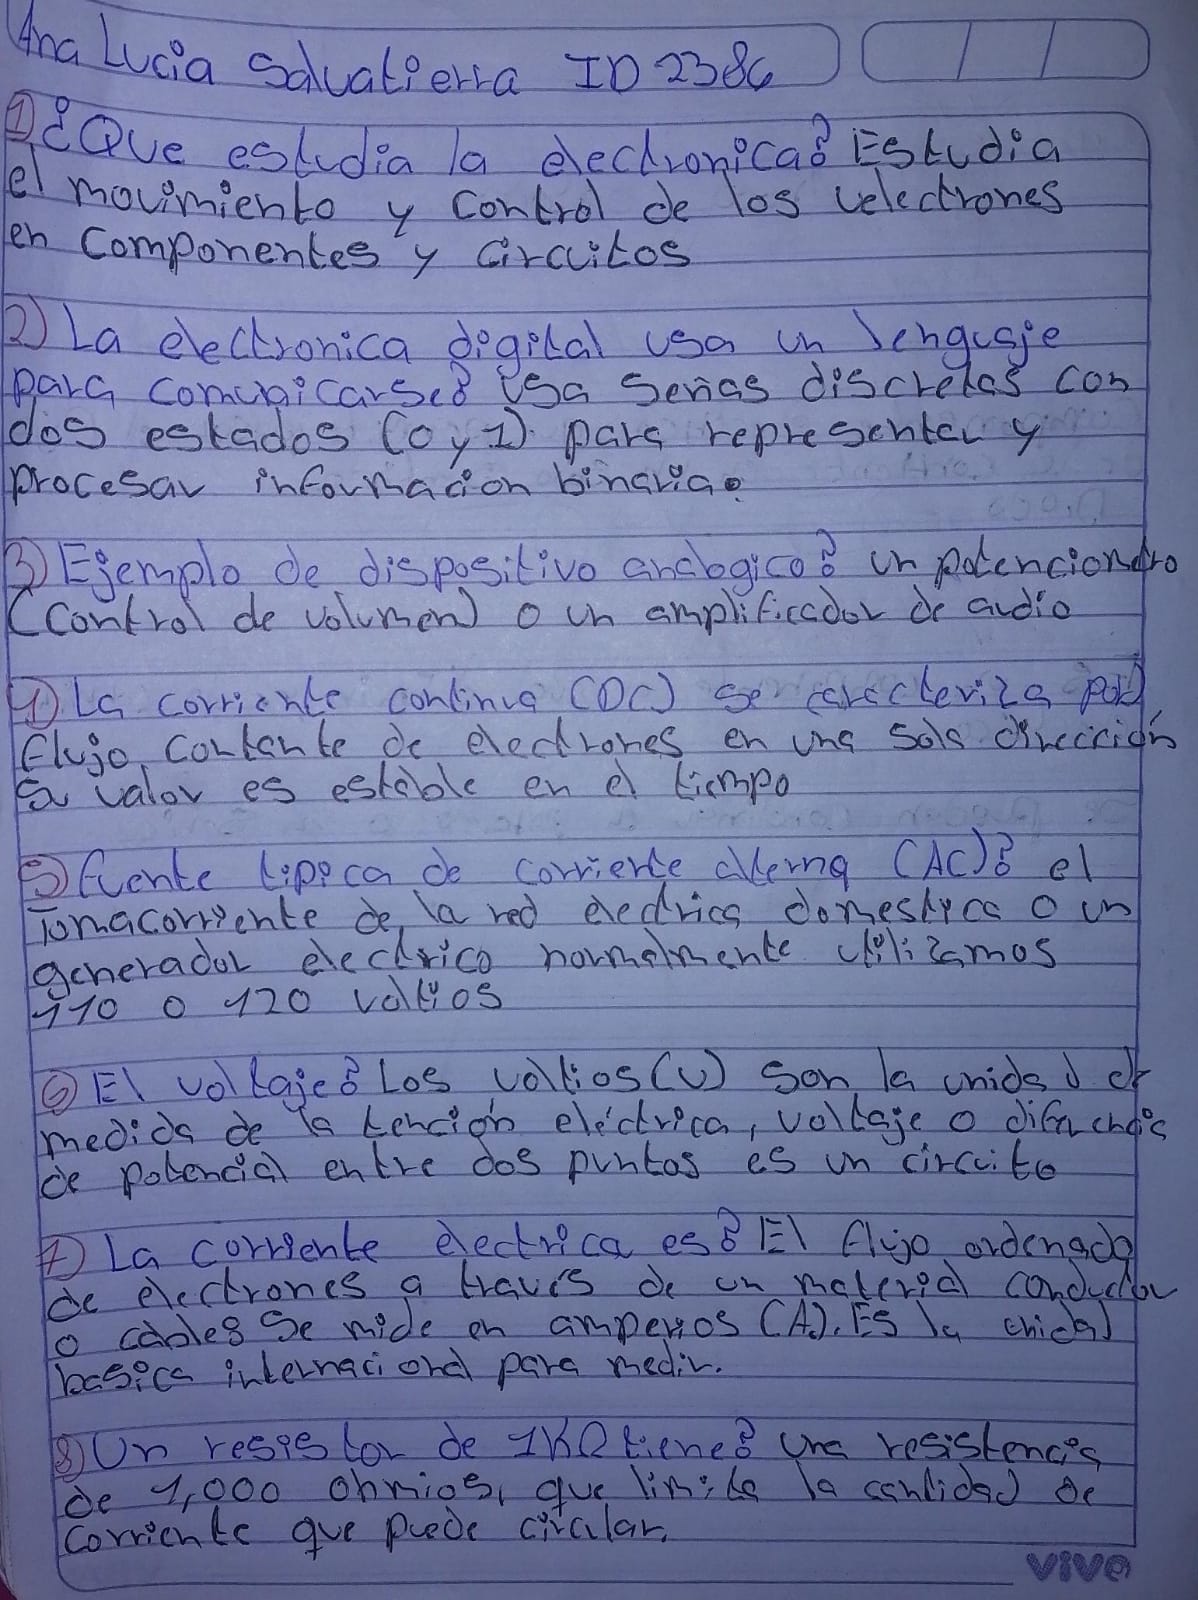 Ana Lucia Salvatierra ID 2386
1) ¿Que estudia la electronica? Estudia
el movimiento y control de los electrones
en componentes y circuitos
2) La electronica digital usa un lenguaje
para comunicarse? Usa señas discretas con
dos estados (0 y 1) para representar y
procesar informacion binaria.
3) Ejemplo de dispositivo analogico? un potenciometro
(Control de volumen) o un amplificador de audio
4) La corriente continua (DC) se caracteriza por
flujo contante de electrones en una sola dirección
Su valor es estable en el tiempo
5) fuente tipica de corriente alterna (AC)? el
Tomacorriente de la red electrica domestica o un
generador electrico normalmente utilizamos
110 o 120 voltios
6) El voltaje? Los voltios (v) son la unidad de
medida de la tención eléctrica, voltaje o diferencia
de potencial entre dos puntos es un circuito
7) La corriente electrica es? El flujo ordenado
de electrones a través de un material conductor
o cables se mide en amperios (A). Es la unidad
basica internacional para medir.
8) Un resistor de 1KΩ tiene? una resistencia
de 1,000 ohmios, que limita la cantidad de
corriente que puede circular.
vive